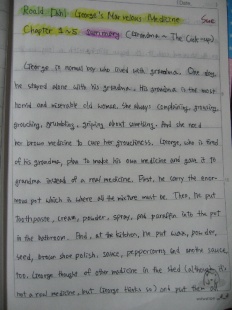 Roald Dahl George's Marvelous Medicine
Chapter 1~5 Summary (Grandma ~ The Cook-up)
George is normal boy who lived with grandma. One day,
he stayed alone with his grandma. His grandma is the most
horrid and miserable old woman. She always complaining, grousing,
grouching, grumbling, griping about something. And she need
her brown medicine to cure her grouchiness. George, who is tired
of his grandma, plan to make his own medicine and gave it to
grandma instead of a real medicine. First, he carry the enor-
mous pot which is where all the mixture must be. Then, he put
toothpaste, cream, powder, spray, and paraffin into the pot
in the bathroom. And, at the kitchen, he put wash, powder,
seed, brown shoe polish, sauce, peppercorns and
too. George thought of other medicine in the shed (although it's
not a real medicine, but George thinks so) and put them all